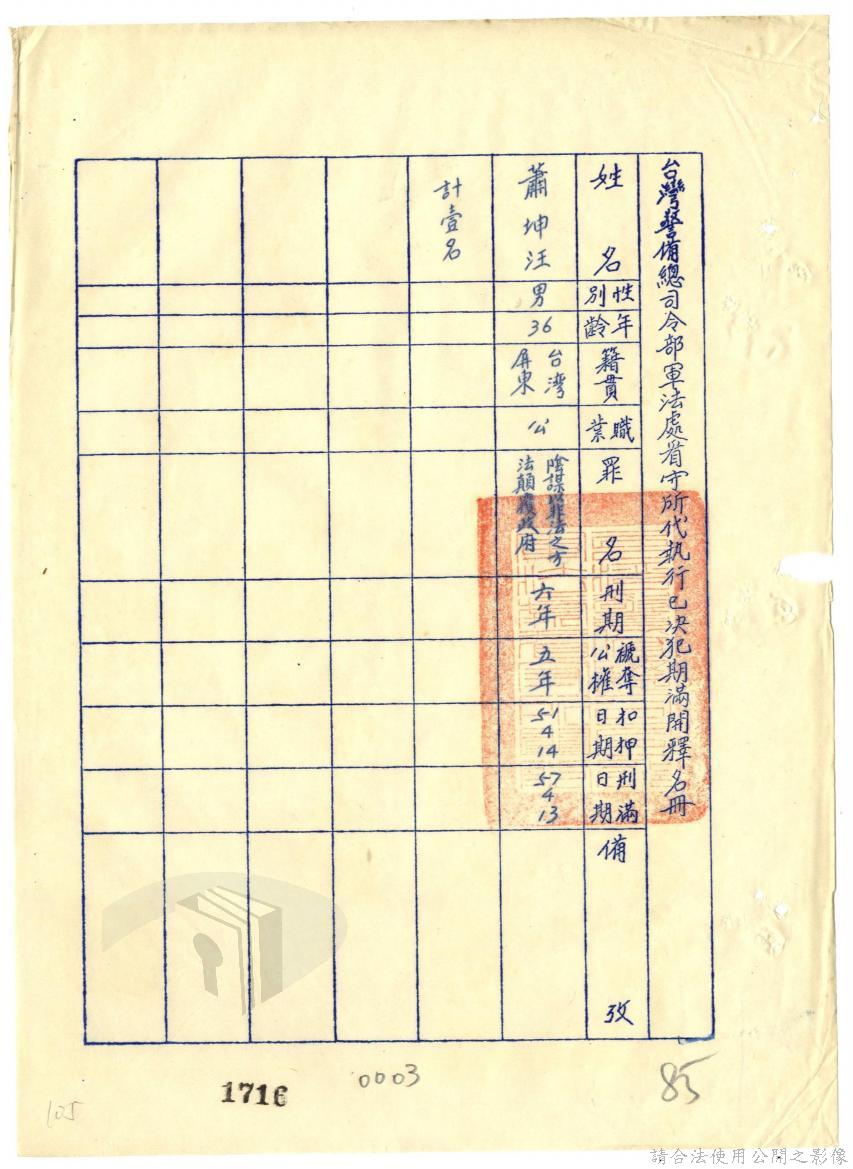 台灣警備總司令部軍法處看守所代執行已决犯期滿開釋名冊
姓名
性別
年齡
籍貫
職業
罪名
刑期
褫奪公權
扣押日期
刑滿日期
備攷
蕭坤汪
男
36
台灣
屏東
公
陰謀以非法之方
法顛覆政府
六年
五年
51
4
14
57
4
13
計壹名
1716
0003
85
105
請合法使用公開之影像